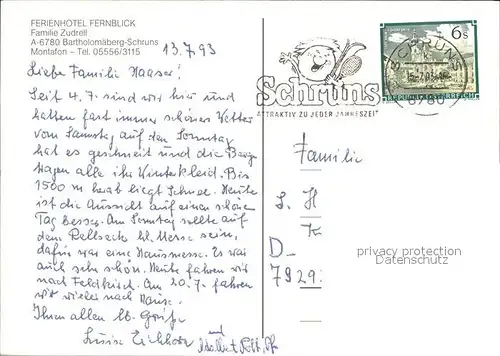 FERIENHOTEL FERNBLICK
Familie Zudrell
A-6780 Bartholomäberg-Schruns
Montafon – Tel. 05556/3115
13.7.93
Liebe Familie
Seit 4.7. sind wir hier und
hatten fast immer schönes Wetter
vom Samstag auf den Sonntag
hat es geschneit und die Berge
tragen alle ihr Winterkleid. Bis
1500 m herab liegt Schnee. Heute
ist die Aussicht auf einen schönen
Tag besser. Am Sonntag sollte auf
dem hl. Messe sein,
dafür war eine Hausmesse. Es war
auch sehr schön. Heute fahren wir
nach Feldkirch. Am 20.7. fahren
wir wieder nach Hause.
Ihnen allen lb. Grüße
Luise Eichhorn und
Schruns
ATTRAKTIV ZU JEDER JAHRESZEIT
6 S
SCHRUNS
6780
REPUBLIK ÖSTERREICH
Familie
D-
7929
privacy protection
Datenschutz